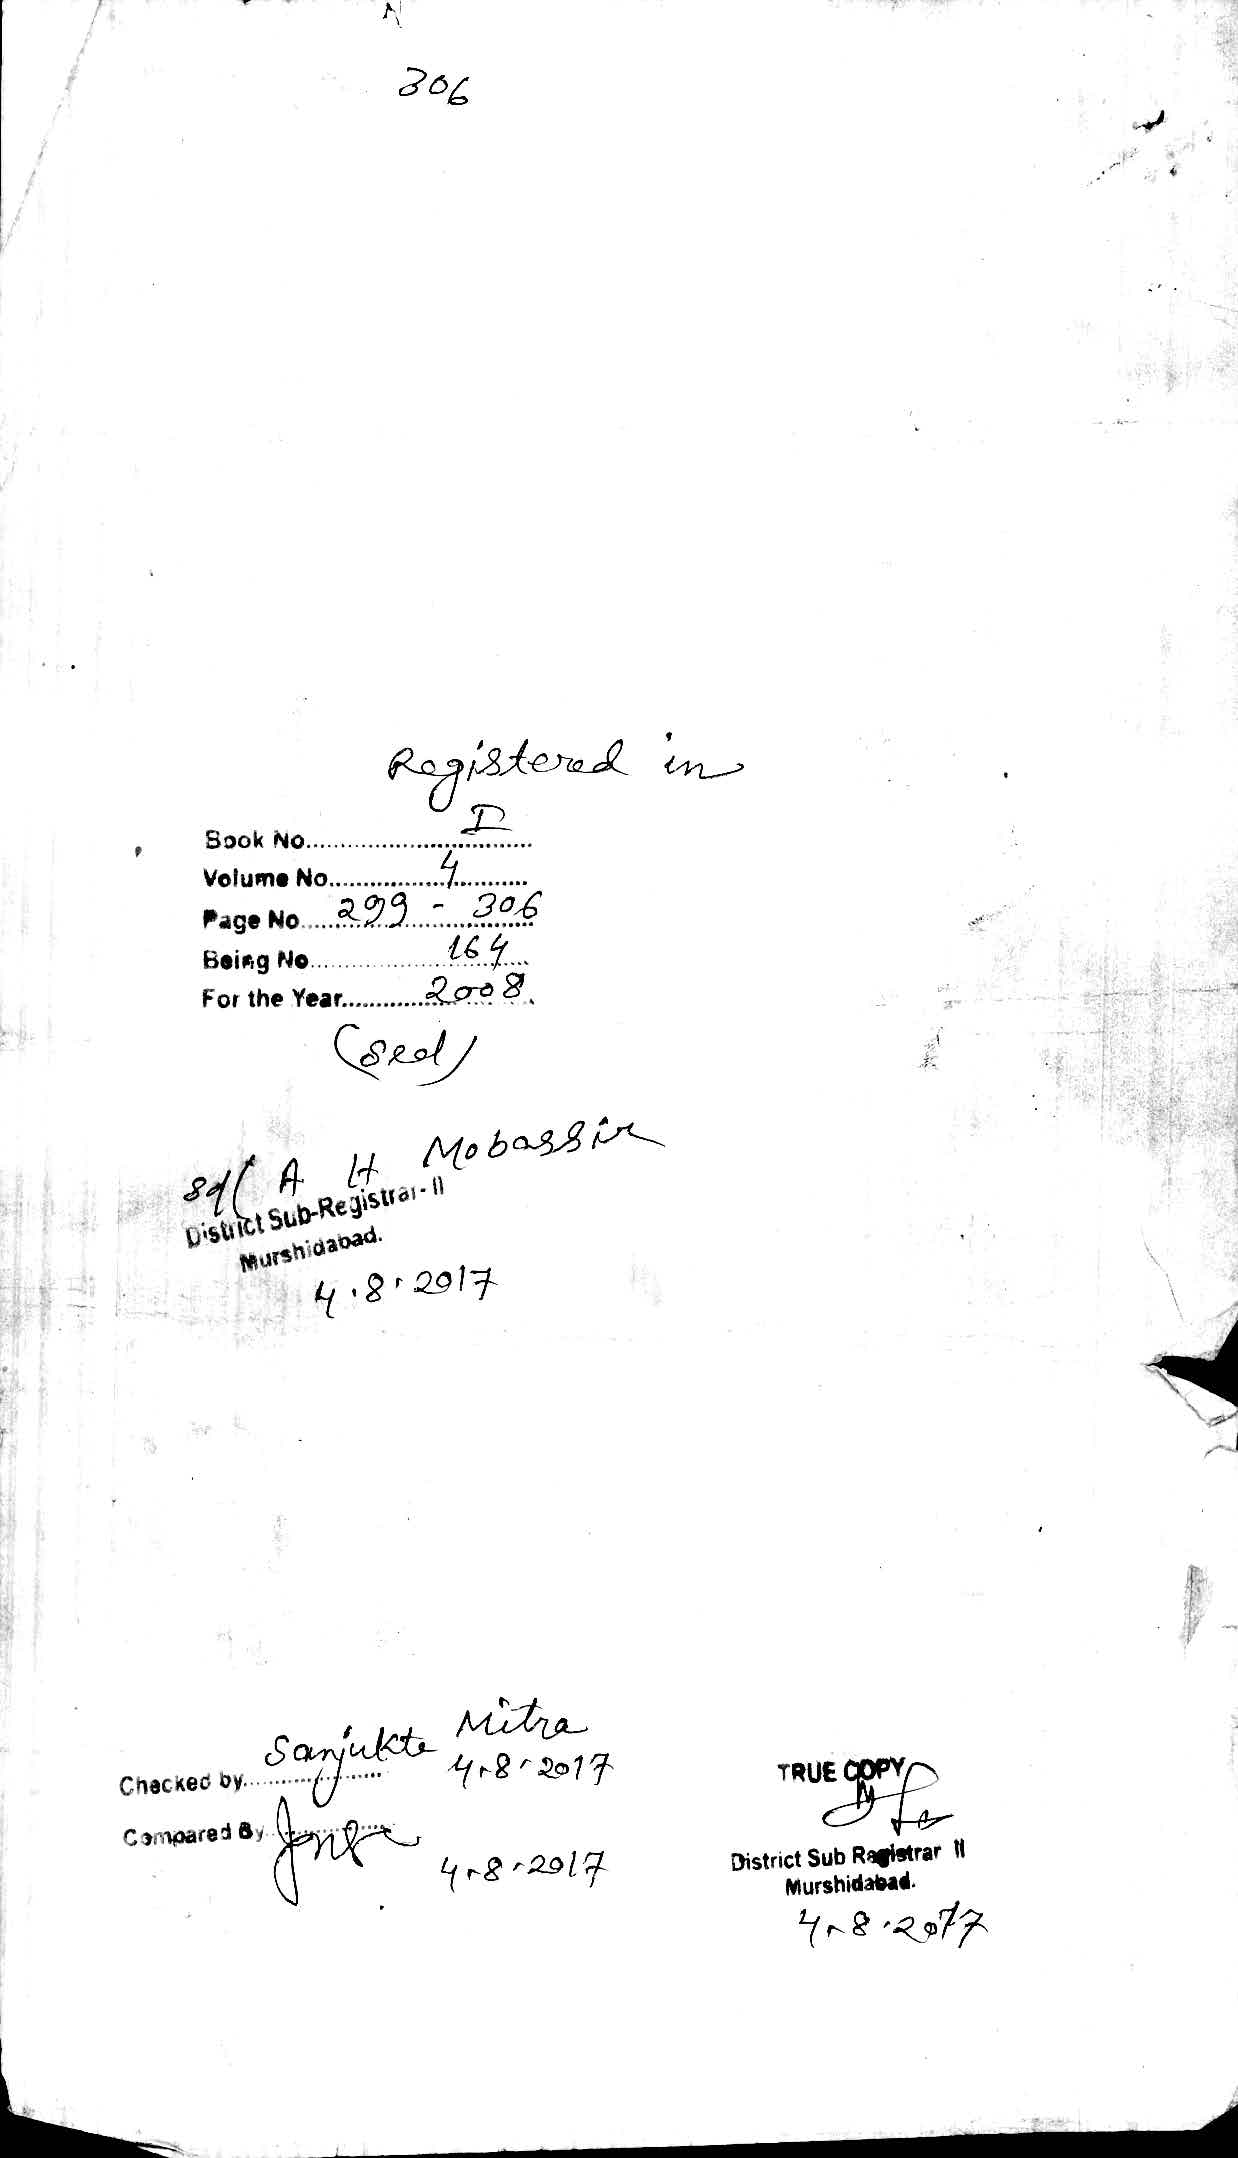 306
Registered in
Book No. I
Volume No. 4
Page No. 299 - 306
Being No. 164
For the Year. 2008
(Sed)
Sd/ A H Mobassir
District Sub-Registrar-II
Murshidabad.
4.8.2017
Checked by. Sanjukta Mitra
4.8.2017
Compared By
4.8.2017
TRUE COPY
District Sub Registrar II
Murshidabad.
4.8.2017